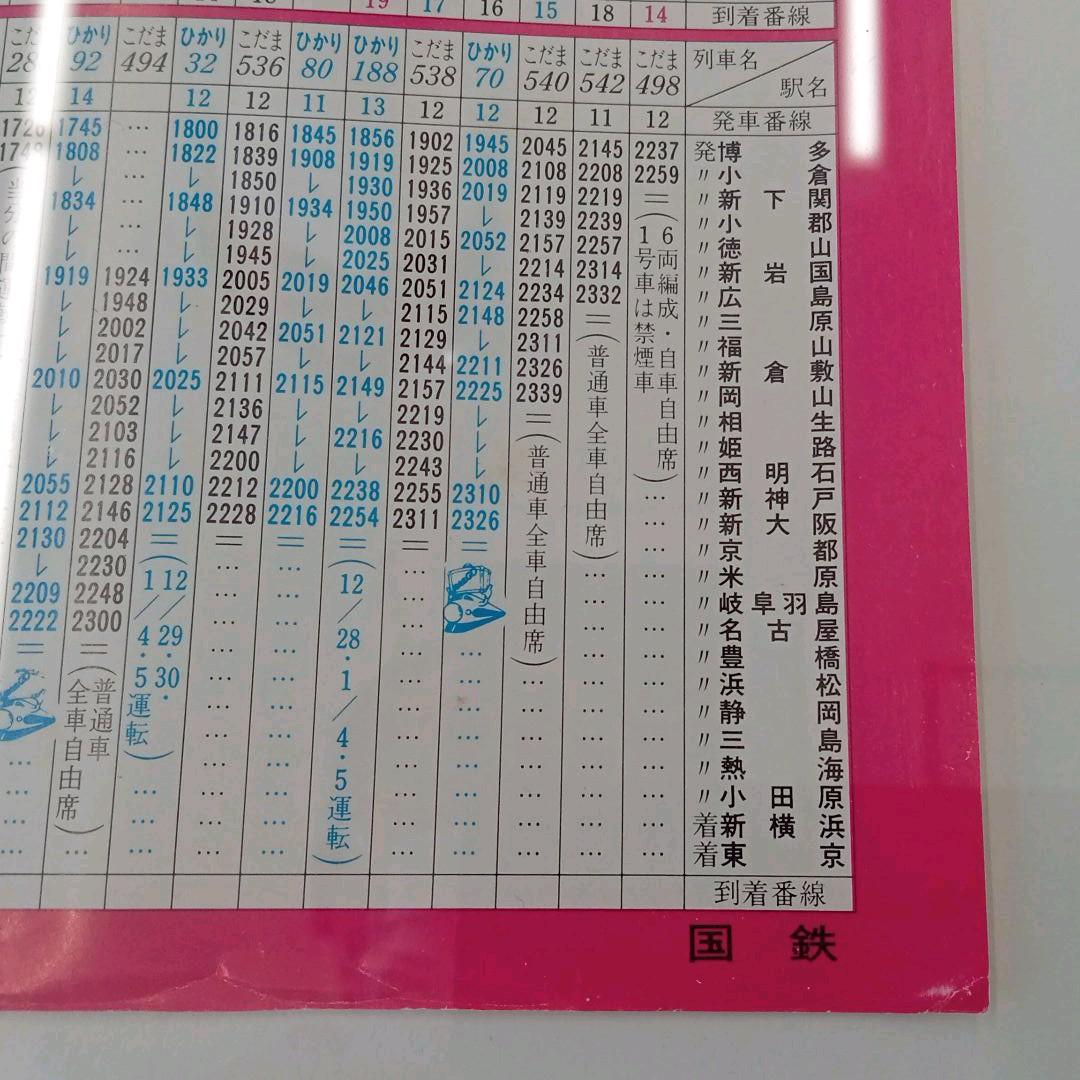 19 17 16 15 18 14 到着番線
こだ ひかり こだま ひかり こだま ひかり ひかり こだま ひかり こだま こだま こだま 列車名
28 92 494 32 536 80 188 538 70 540 542 498 駅名
12 14 12 12 11 13 12 12 12 11 12 発車番線
1726 1745 … 1800 1816 1845 1856 1902 1945 2045 2145 2237 発博多
1748 1808 … 1822 1839 1908 1919 1925 2008 2108 2208 2259 〃小倉
レ … レ 1850 レ 1930 1936 2019 2119 2219 = 〃新下関
1834 … 1848 1910 1934 1950 1957 レ 2139 2239 〃小郡
レ … レ 1928 レ 2008 2015 2052 2157 2257 〃徳山
レ … レ 1945 レ 2025 2031 レ 2214 2314 〃新岩国
1919 1924 1933 2005 2019 2046 2051 2124 2234 2332 〃広島
レ 1948 レ 2029 レ レ 2115 2148 2258 = 〃三原
レ 2002 レ 2042 2051 2121 2129 レ 2311 〃福山
レ 2017 レ 2057 レ レ 2144 2211 2326 〃新倉敷
2010 2030 2025 2111 2115 2149 2157 2225 2339 〃岡山
レ 2052 レ 2136 レ レ 2219 レ = 〃相生
レ 2103 レ 2147 レ 2216 2230 レ 〃姫路
レ 2116 レ 2200 レ レ 2243 レ 〃西明石
2055 2128 2110 2212 2200 2238 2255 2310 〃新神戸
2112 2146 2125 2228 2216 2254 2311 2326 〃新大阪
2130 2204 = = = = = = 〃京都
レ 2230 〃米原
2209 2248 〃岐阜羽島
2222 2300 〃名古屋
= = 〃豊橋
〃浜松
〃静岡
〃三島
〃熱海
〃小田原
着新横浜
着東京
(6両編成・自由席)
1号車は禁煙車
(普通車全車自由席)
(普通車全車自由席)
(12/28・1/4・5運転)
(12/29・30・
1/4・5運転)
(普通車
全車自由席)
到着番線
国鉄